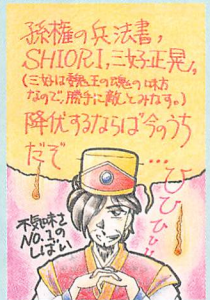 孫権の兵法書，
SHIORI，三好正晃。
（三好は魏王の魂の味方
なので、勝手に敵とみなす。）
降伏するならば今のうち
だぞ
…ひひひひひ
不気味さ
NO.1の
しばい